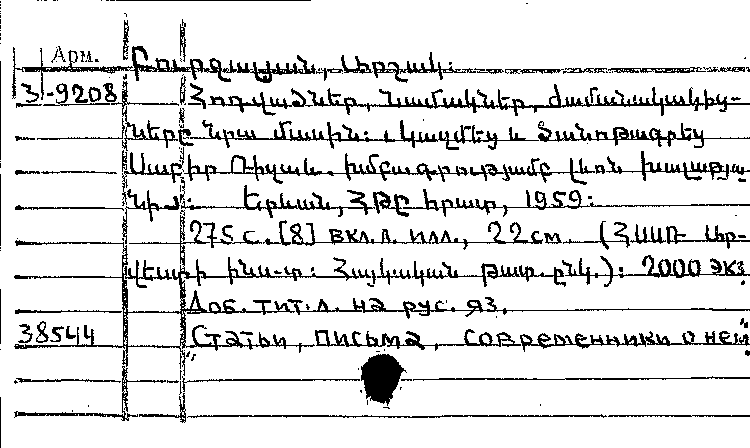 Арм. Բուրջալյան, Արշակ:
3-9208 Հոդվածներ, նամակներ, ժամանակակից-
ները նրա մասին: Կազմեց և ծանոթագրեց
Սաբիր Ռիզաև. խմբագրությամբ Լևոն Խալաթյա-
նի: Երևան, ՀԹԸ հրատ, 1959:
275 с. [8] вкл.л. илл., 22 см. (ՀՍՍՌ Ար-
վեստի ինս-տ: Հայկական թատ. ընկ.): 2000 экз.
Доб. тит. л. на рус. яз.
38544 "Статьи, письма, современники о нем"